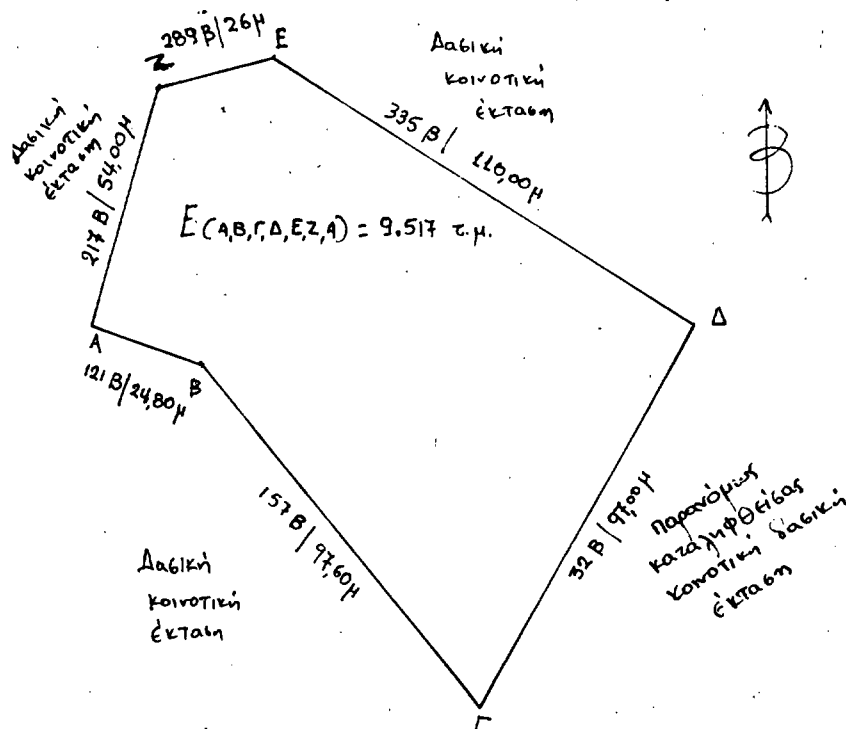 289 Β/26μ
Ζ
Ε
Δασική
κοινοτική
έκταση
Δασική
κοινοτική
έκταση
335 Β/ 110,00μ
217 Β/ 54,00μ
Β
Ε(Α,Β,Γ,Δ,Ε,Ζ,Α) = 9.517 τ.μ.
Δ
Α
Β
121 Β/24,80μ
157 Β/97,60μ
32 Β/97,00μ
Παρανόμως
καταληφθείσας
κοινοτική δασική
έκταση
Δασική
κοινοτική
έκταση
Γ